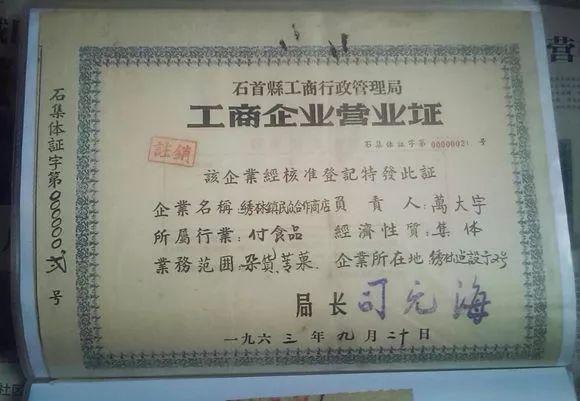 石首縣工商行政管理局
工商企业营业证
石集体証字第 0000002 号
註銷
該企業經核准登記特發此証
企業名稱:綉林鎮民众合作商店 負責人:萬大宇
所屬行業:付食品 經濟性質:集体
業務范囲:杂貨、 企業所在地 綉林
局长 司元海
一九六三年九月二十日
石集体証字第000000弍号
营
社区